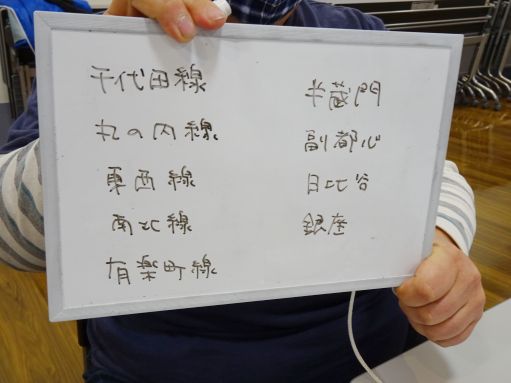 千代田線
丸の内線
東西線
南北線
有楽町線
半蔵門
副都心
日比谷
銀座